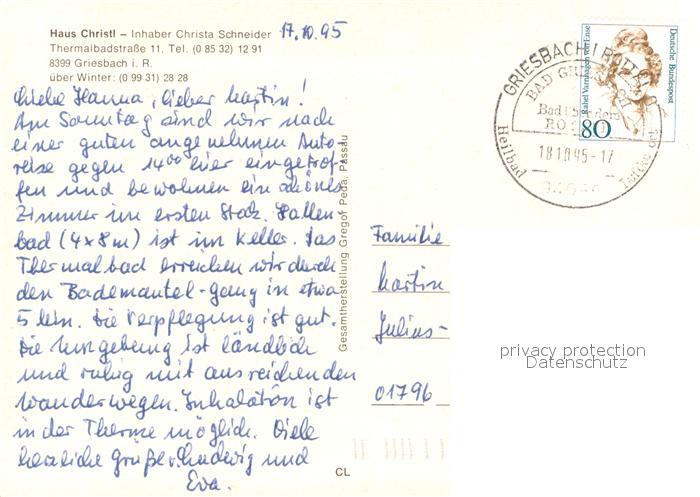 Haus Christl – Inhaber Christa Schneider
Thermalbadstraße 11, Tel. (0 85 32) 12 91
8399 Griesbach i. R.
über Winter: (0 99 31) 28 28
17.10.95
Liebe Hanna, lieber Martin!
Am Sonntag sind wir nach
einer guten angenehmen Auto-
reise gegen 14⁰⁰ hier eingetrof-
fen und bewohnen ein schönes
Zimmer im ersten Stock. Hallen-
bad (4x8m) ist im Keller. Das
Thermalbad erreichen wir durch
den Bademantel-Gang in etwa
5 Min. Die Verpflegung ist gut.
Die Umgebung ist ländlich
und ruhig mit ausreichenden
Wanderwegen. Inhalation ist
in der Therme möglich. Viele
herzliche Grüße Ludwig und
Eva.
Gesamtherstellung Gregor Peda, Passau
CL
Familie
Martin
Julius-
01796
Deutsche Bundespost
Rahel Varnhagen von Ense
80
GRIESBACH I ROTTAL
BAD
Heilbad
18.10.95-17
privacy protection
Datenschutz